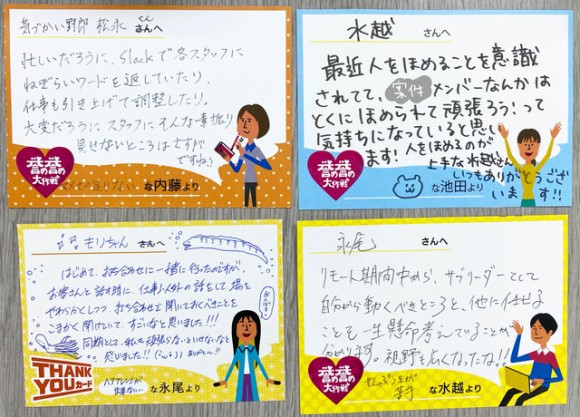 気づかい野郎 松永 くん さんへ
忙しいだろうに、Slackで各スタッフに
ねぎらいワードを返していたり、
仕事も引き上げて調整したり。
大変だろうに スタッフにそんな素振り
見せないところはさすが
ですね!!
誉め誉め
大作戦
な内藤より
水越 さんへ
最近人をほめることを意識
されてて、案件メンバーなんかは
とくにほめられて頑張ろう!って
気持ちになっていると思い
ます! 人をほめるのが
上手な水越さん
いつもありがとうござい
います!!
誉め誉め
大作戦
な池田より
もりちゃん さんへ
はじめて、お打ち合わせに一緒に行ったのですが、
お客さんと話す時に、仕事以外の話をして、場を
やわらかくしつつ、打ち合わせで聞いておくべきことを
こまかく聞けていて、すごいなと思いました!!!
同期として、私も頑張らないといけないなと
思いました!!
THANK
YOUカード
な永尾より
永尾 さんへ
リモート期間中から、サブリーダーとして
自分から動くべきところと、他に任せる
ことを一生懸命考えていることが
分かります。視野も広くなったね!!
誉め誉め
大作戦
な水越より